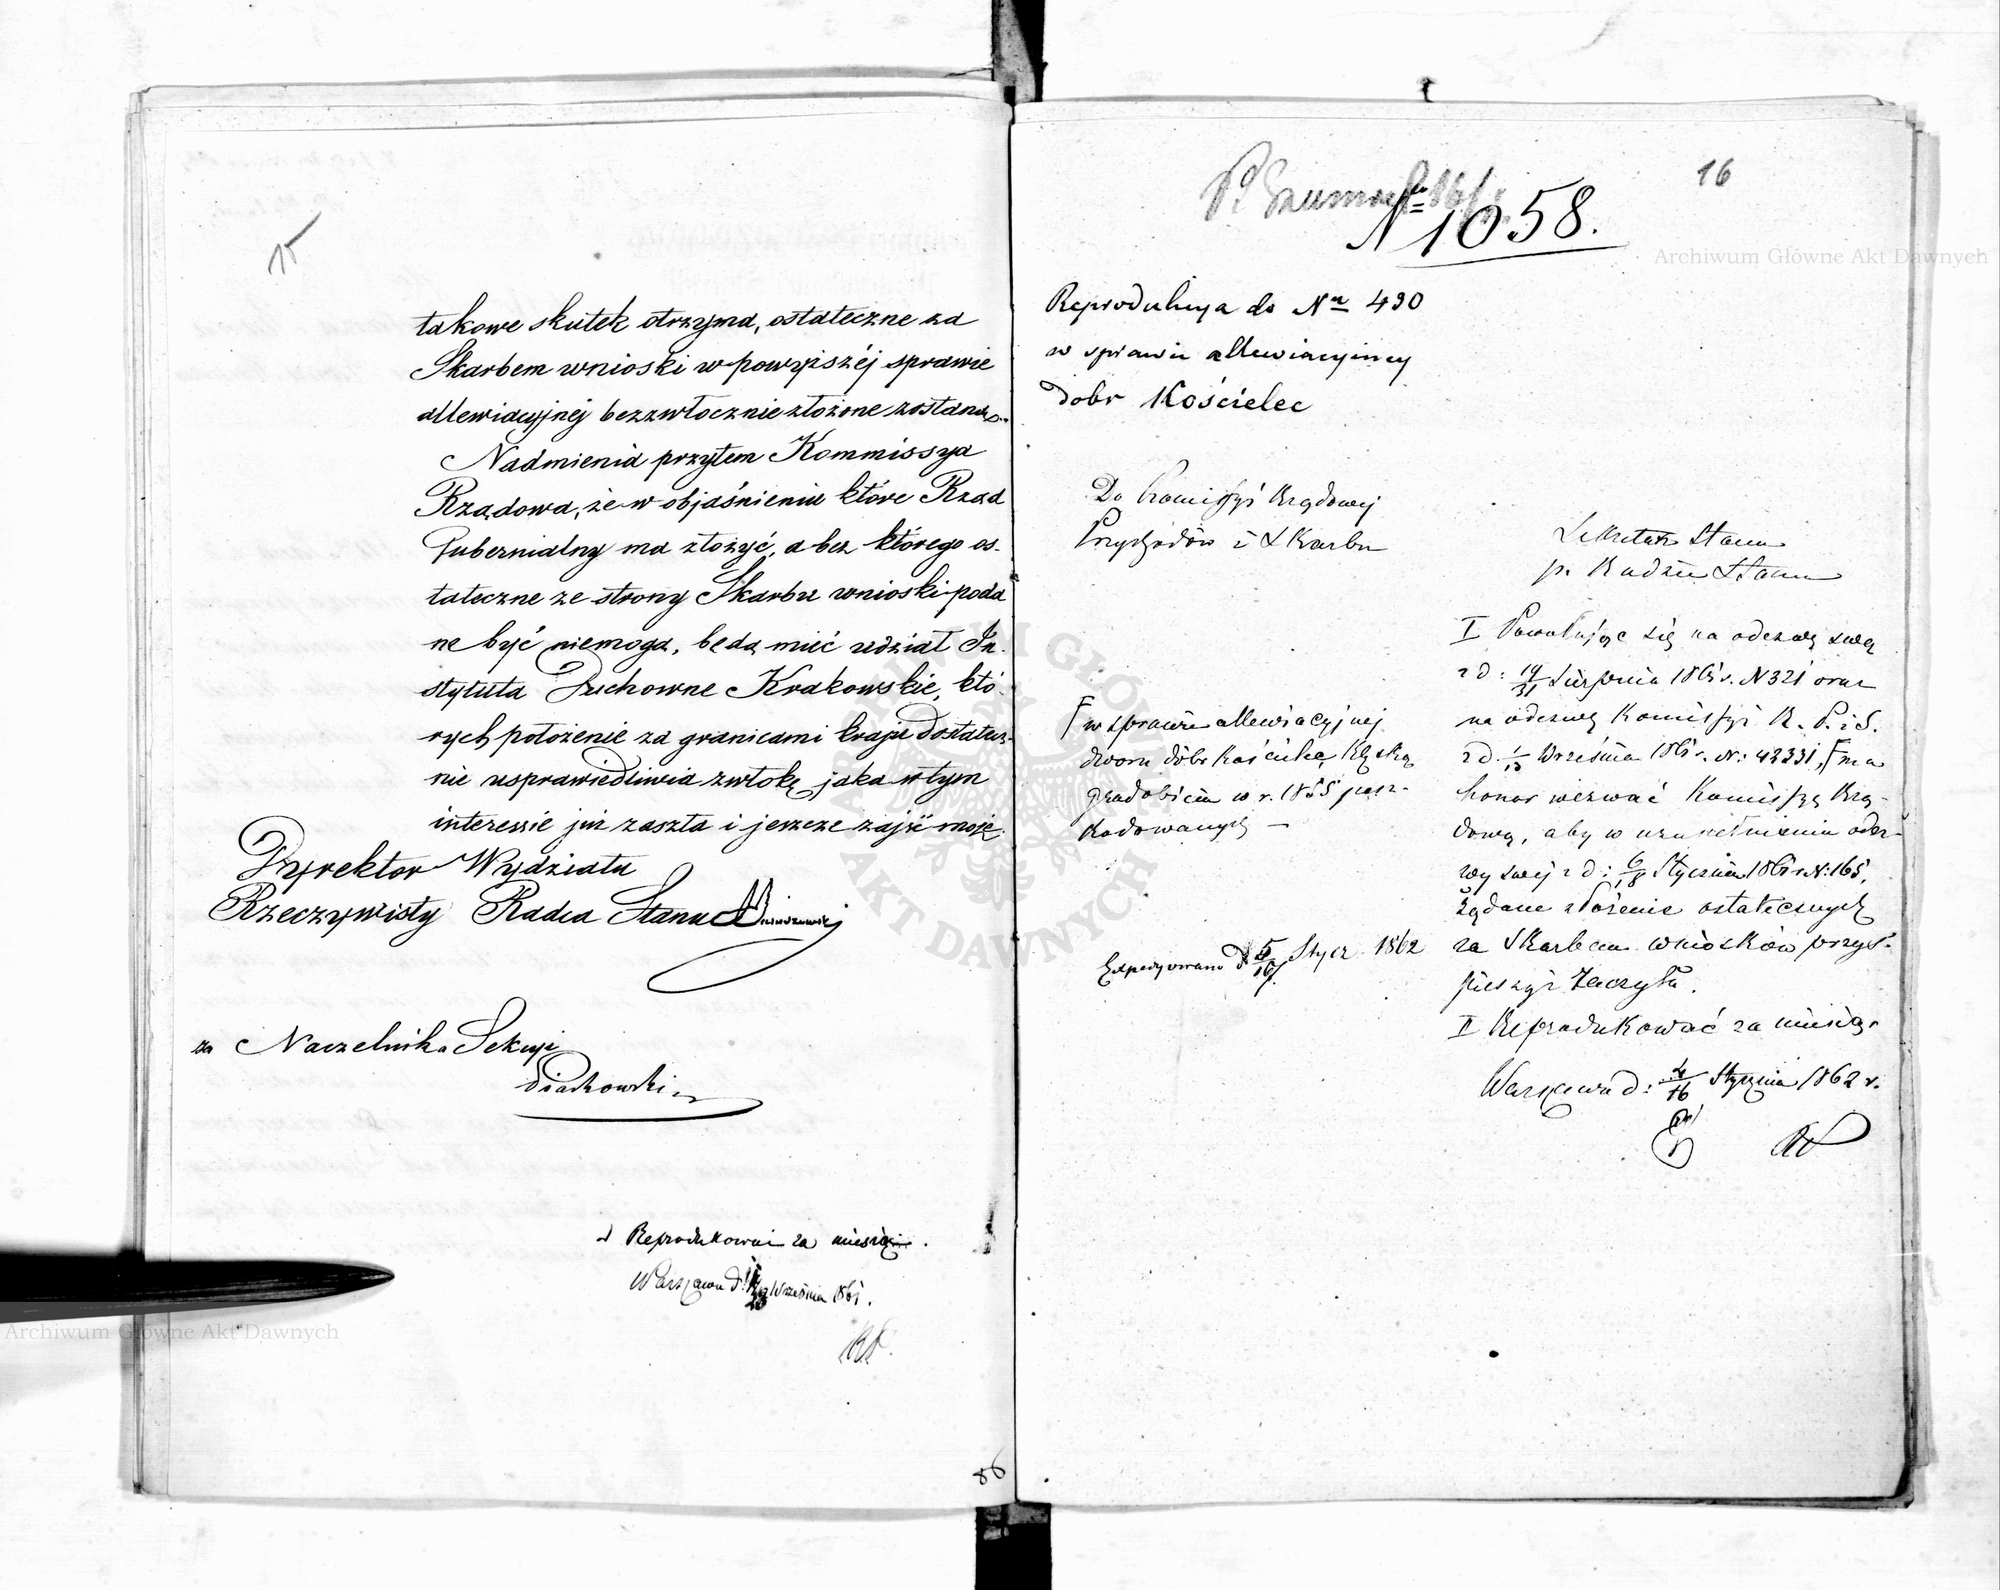 15
takowe skutek otrzyma, ostateczne za
Skarbem wnioski w powyższéj sprawie
allewiacyjnéj bezzwłocznie złożone zostaną.
Nadmienia przytem Kommissya
Rządowa, że w objaśnieniu które Rząd
Gubernialny ma złożyć, a bez którego os-
tateczne ze strony Skarbu wnioski poda
ne być niemogą, będą mieć udział In-
stytuta Duchowne Krakowskie, któ-
rych położenie za granicami kraju dostatecz-
nie usprawiedliwia zwłokę, jaka w tym
interessie już zaszła i jeszcze zajść może.
Dyrektor Wydziału
Rzeczywisty Radca Stanu
za Naczelnika Sekcyi
Piaskowski
Reprodukować za miesiąc.
Warszawa d. Września 1861.
86
16
N 1058.
Reprodukcya do Nru 430
w sprawie allewiacyjnéj
dobr Kościelec
Do Kommissyi Rządowej
Przychodów i Skarbu
Sekretarz Stanu
p. Radzie Stanu
I Powołując się na odezwę swą
z d: 19/31 Sierpnia 1861 r. N 321 oraz
na odezwę Komissyi R. P. i S.
z d. 1/13 Września 1861 r. Nr: 42331, ma
honor wezwać Komissyę Rzą-
dową, aby w uzupełnieniu odez-
wy swej z d: 6/18 Stycznia 1861 r N: 165,
żądane złożenie ostatecznych
za Skarbem wniosków przys-
pieszyć raczyła.
w sprawie allewiacyjnej
dworu dóbr Kościelec klęską
gradobicia w r. 1855 posz-
kodowanych
Expedyowano d 5/17 Stycz 1862
II Reprodukować za miesiąc
Warszawa d: 4/16 Stycznia 1862 r.
Archiwum Główne Akt Dawnych
Archiwum Główne Akt Dawnych
ARCHIWUM GŁÓWNE AKT DAWNYCH